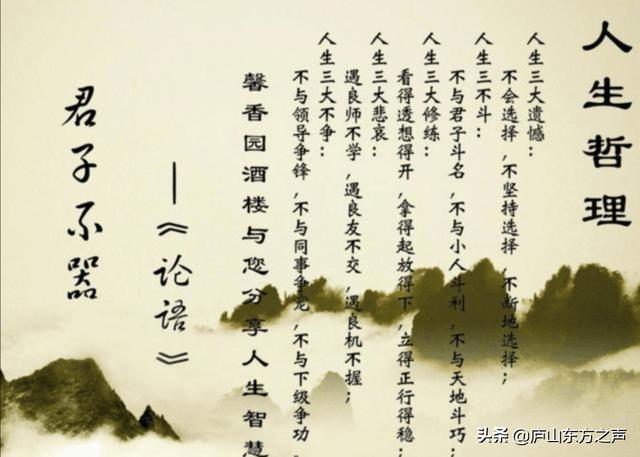 人生哲理
人生三大遗憾：
不会选择，不坚持选择，不断地选择；
人生三不斗：
不与君子斗名，不与小人斗利，不与天地斗巧；
人生三大修练：
看得透想得开，拿得起放得下，立得正行得稳；
人生三大悲哀：
遇良师不学，遇良友不交，遇良机不握；
人生三大不争：
不与领导争锋，不与同事争宠，不与下级争功。
馨香园酒楼与您分享人生智慧
——《论语》
君子不器
头条 @庐山东方之声